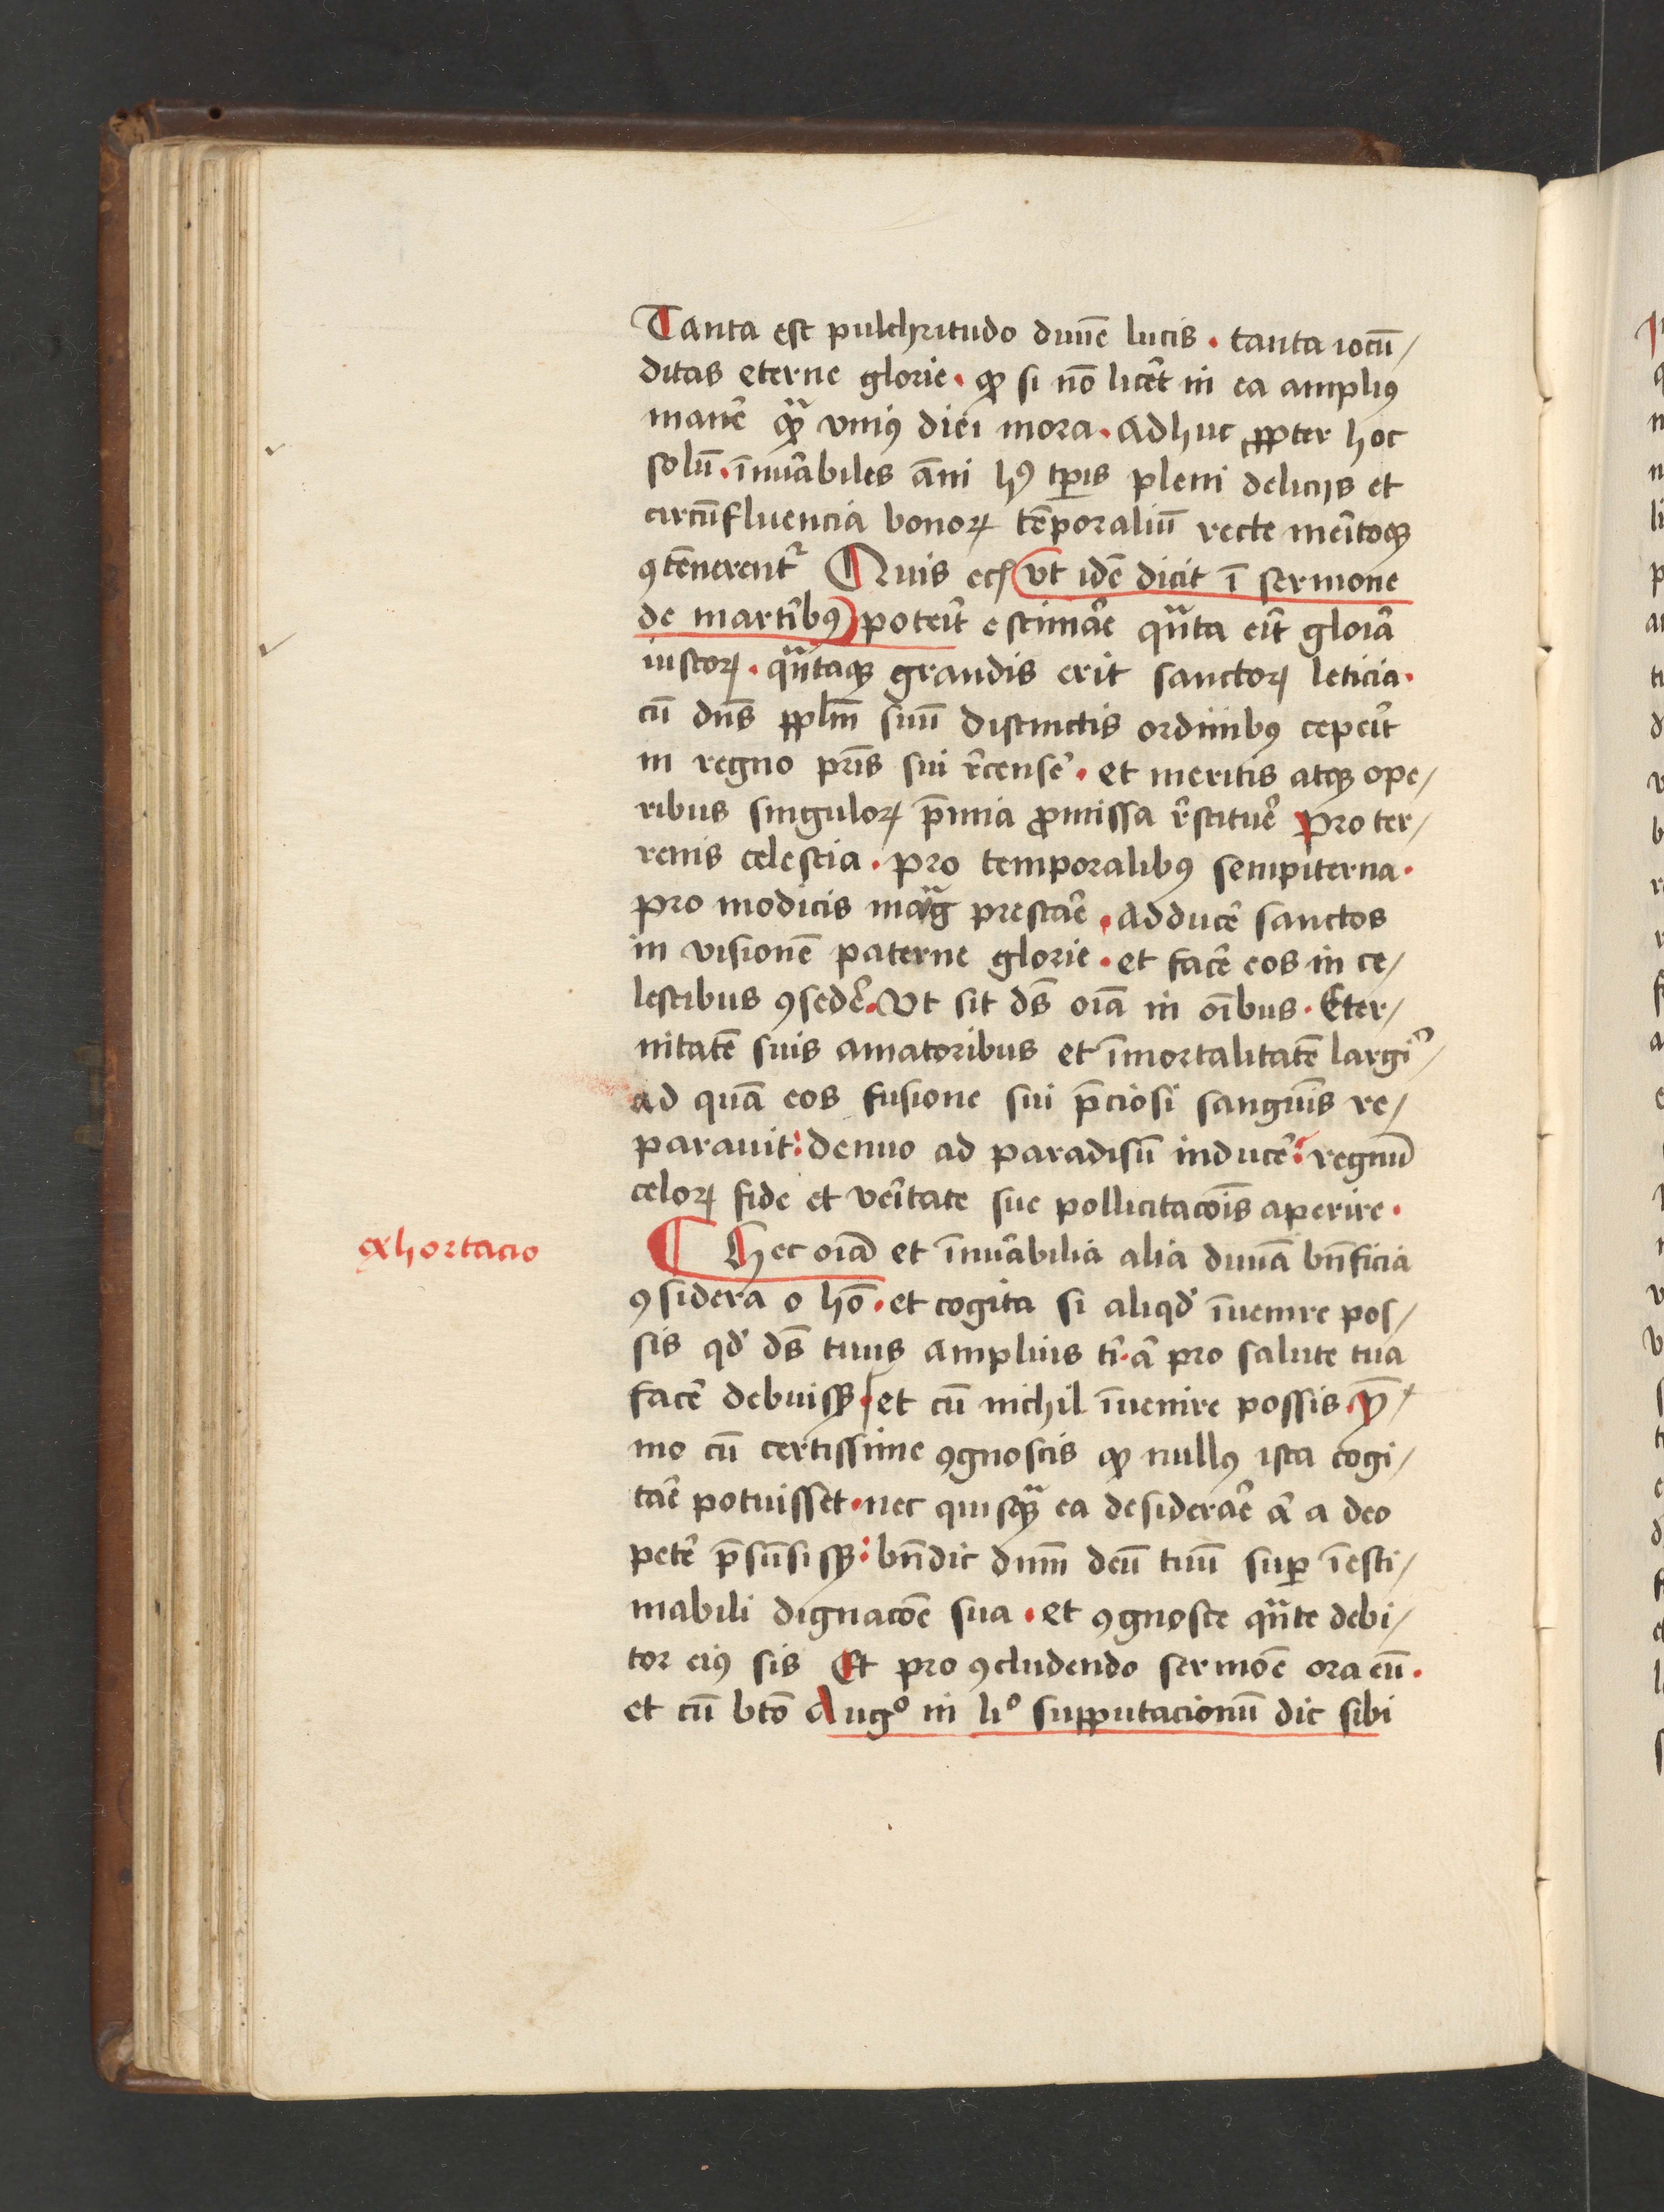 Tanta est pulchritudo diuine lucis · tanta iocu̅/
ditas eterne glorie · ꝙ si no̅ licet̉ in ea ampliꝰ
manẻ qͣꝫ vniꝰ diei mora · adhuc ꝓpter hoc
solu̅ · i̅nu̅abiles a̅ni hꝰ tp̅is pleni delicijs et
circu̅fluencia bonoꝝ te̅poraliu̅ recte meritoqꝫ
ꝯte̅nerentᷣ Quis ec̅ (vt ide̅ dicit i̅ sermone
de martiribꝰ) poterit estimare qua̅ta erit gloria
iustoꝝ · qua̅taqꝫ grandis erit sanctoꝝ leticia ·
cu̅ dn̅s pplm̅ suu̅ distinctis ordinibꝰ ceperit
in regno pr̅is sui rece̅nsere · et meritis atqꝫ ope/
ribus singuloꝝ p̅mia ꝓmissa restituere Pro ter/
renis celestia · pro temporalibꝰ sempiterna ·
pro modicis magͣ prestare · adducere sanctos
in visione̅ paterne glorie · et facere eos in ce/
lestibus ꝯsedere · Vt sit ds̅ oi̅a in oi̅bus · Eter/
nitate̅ suis amatoribus et i̅mortalitate̅ largiri/
ad qua̅ eos fusione sui p̅ciosi sanguinis re/
parauit : denuo ad paradisu̅ inducere : regnu̅
celoꝝ fide et veritate sue pollicitaco̅is aperire ·
exhortacio
¶ Hec oi̅a et i̅nu̅abilia alia diuina bn̅ficia
ꝯsidera o ho̅ · et cogita si aliqd̉ i̅uenire pos/
sis qd̉ ds̅ tuus amplius tỉ · ả pro salute tua
facere debuissꝫ · et cu̅ nichil i̅uenire possis · ymͦ/
mo cu̅ certissime ꝯgnoscis ꝙ nullꝰ ista cogi/
tare potuisset · nec quisqͣꝫ ea desiderare ả a deo
petere p̅su̅sissꝫ : bn̅dic dnm̅ deu̅ tuu̅ suꝑ i̅esti/
mabili dignaco̅e sua · et ꝯgnosce qua̅te debi/
tor eiꝰ sis Et pro ꝯcludendo sermo̅e ora eu̅ ·
et cu̅ bto̅ Augͦ in liͦ supputacionu̅ dic sibi